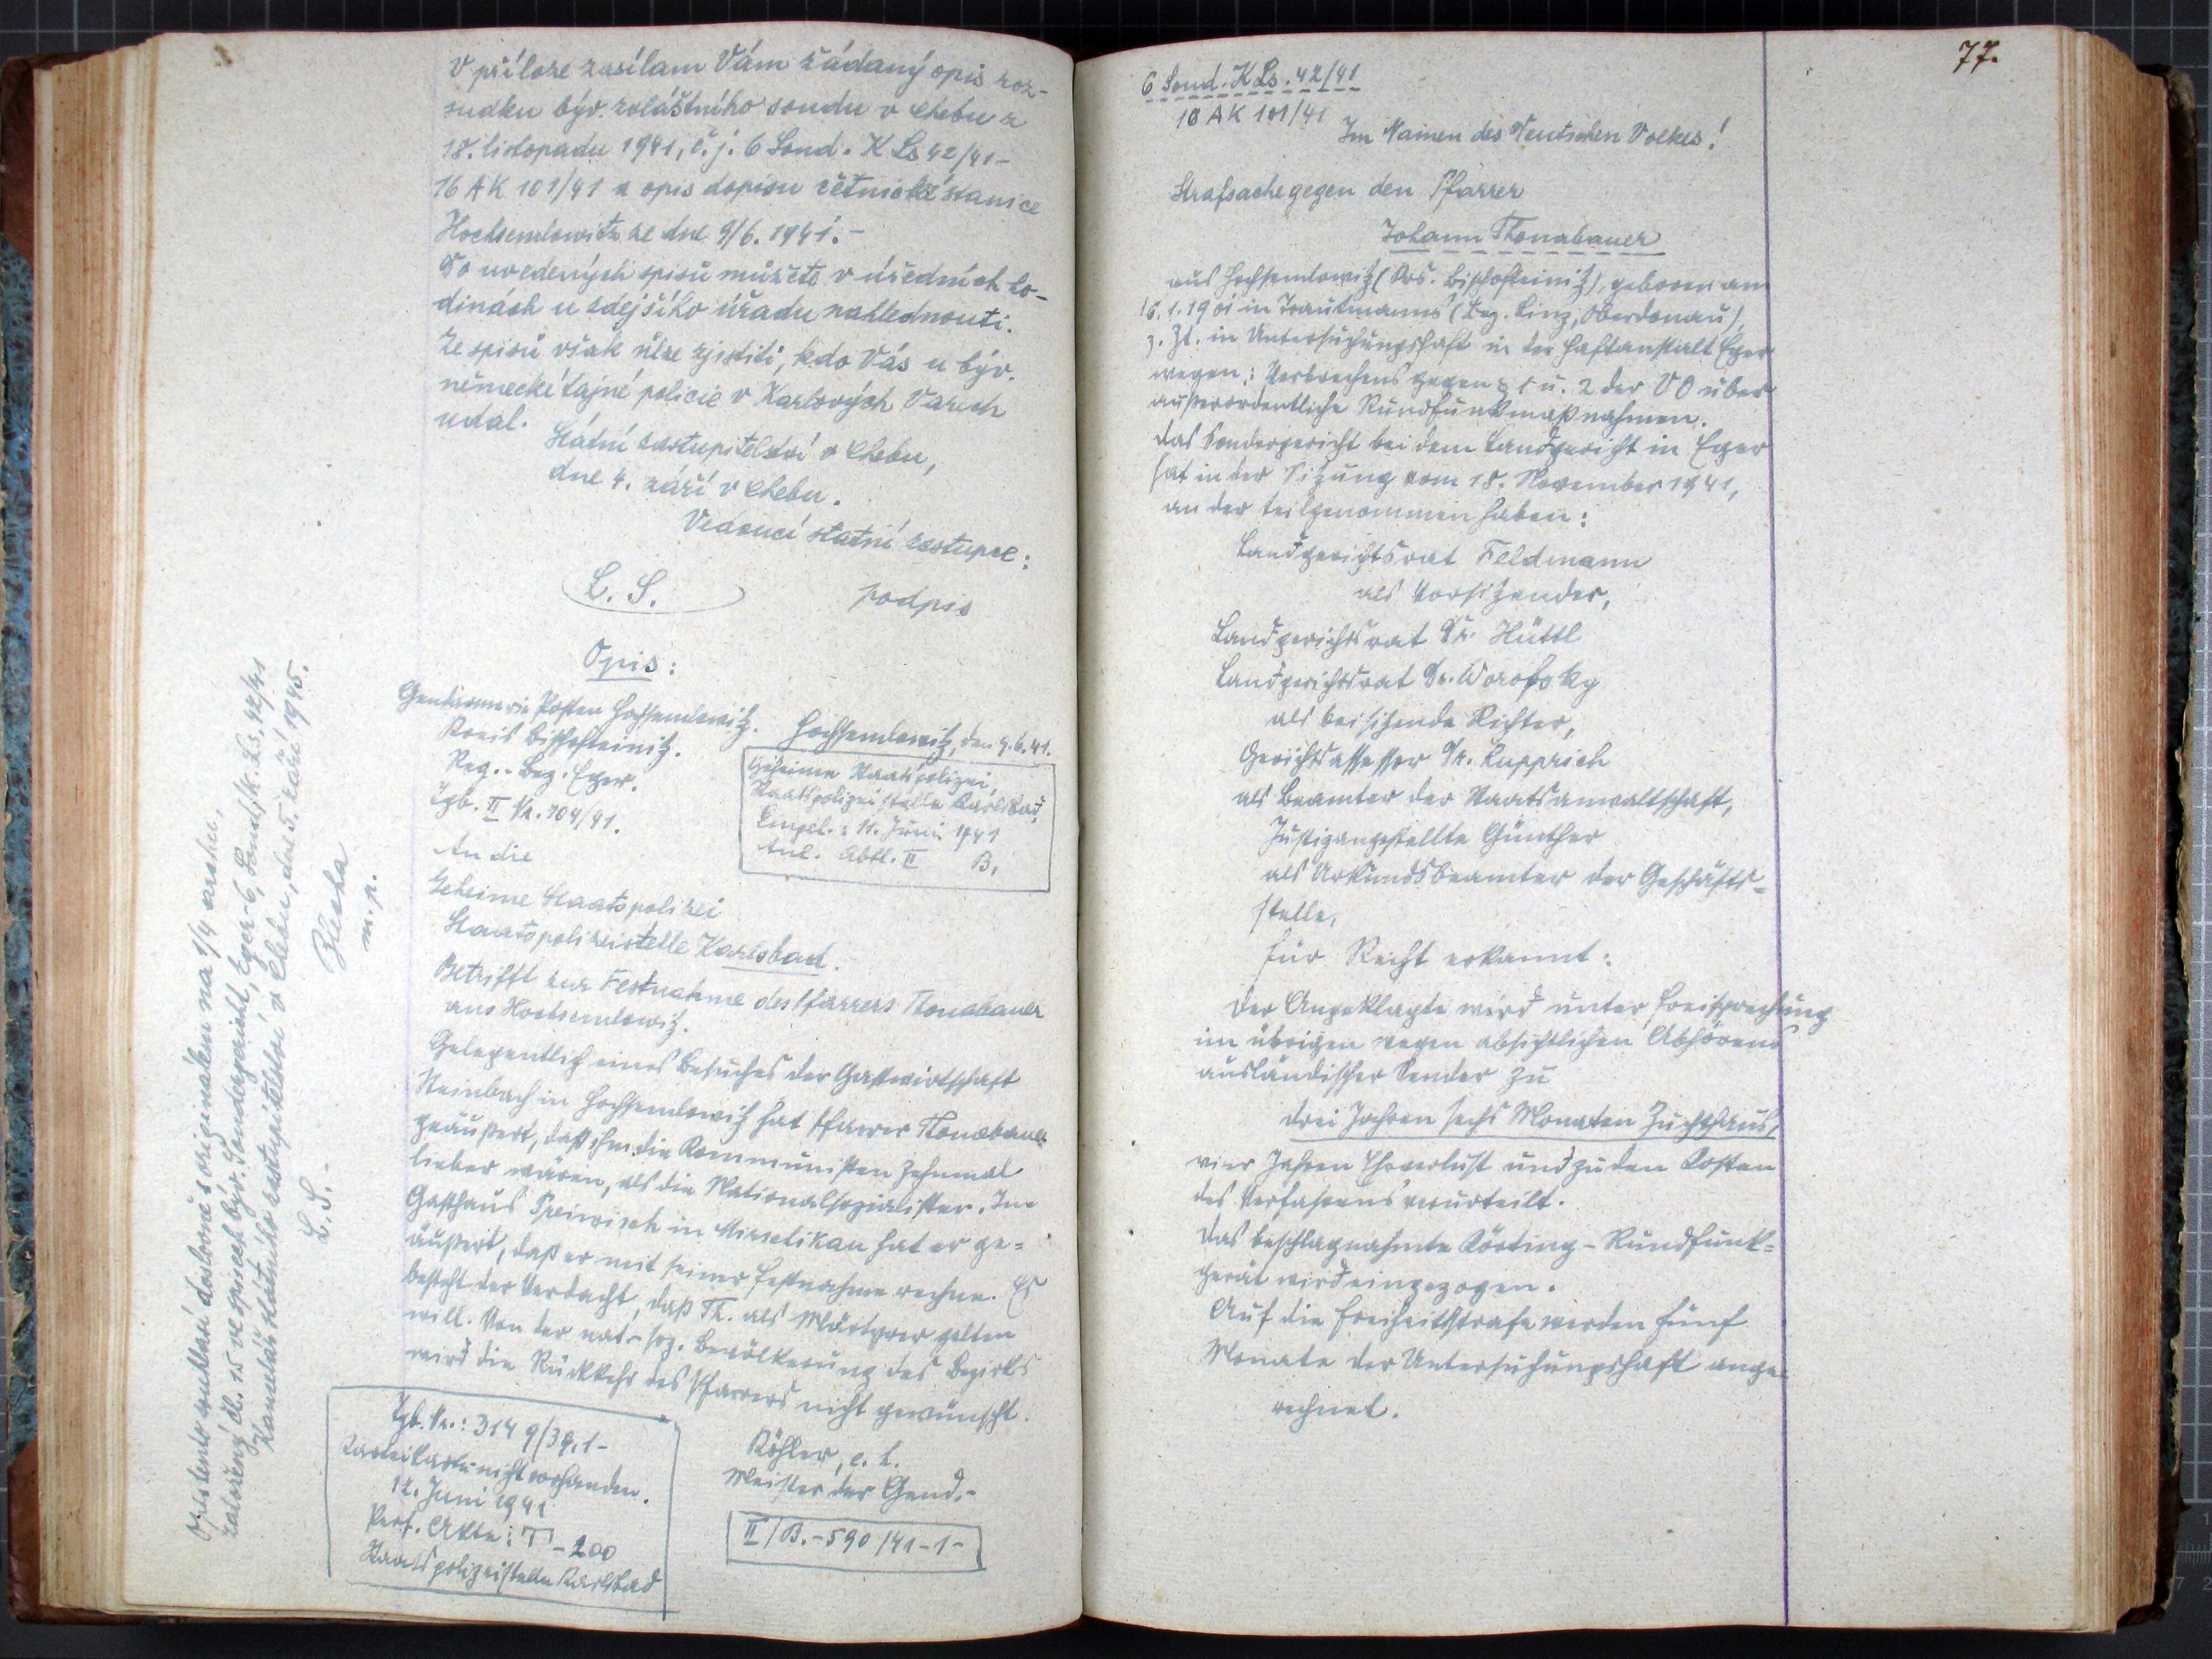 V příloze zasílam Vám žádaný opis roz-
sudku býv. zvláštního soudu v Chebu z
18. listopadu 1941, č. j. 6 Sond. K Ls 42/41 -
16 AK 101/41 a opis dopisu četnické stanice
Hochsemlowitz ze dne 9/6. 1941. -
Do uvedených spisů můžete v úředních ho-
dinách u zdejšího úřadu nahlédnouti.
Ze spisů však nelze zjistiti, kdo Vás u býv.
německé tajné policie v Karlových Varech
udal.
Státní zastupitelství v Chebu,
dne 4. září v Chebu.
Vedoucí státní zástupce:
L. S. podpis
Opis:
Gendarmerie Posten Hochsemlowitz.
Kreis Bischofteinitz.
Reg.-Bez. Eger.
Tgb. II Nr. 704/41.
Hochsemlowitz, den 9.6.41.
Geheime Staatspolizei,
Staatspolizeistelle Karlsbad,
Eingel.: 11. Juni 1941
Anl. Abtl. II B,
An die
Geheime Staatspolizei
Staatspolizeistelle Karlsbad.
Betrifft zur Festnahme des Pfarrers Thonabauer
aus Hochsemlowitz.
Gelegentlich eines Besuches der Gastwirtschaft
Steinbach in Hochsemlowitz hat Pfarrer Thonabauer
geäußert, daß ihm die Kommunisten zehnmal
lieber wären, als die Nationalsozialisten. Im
Gasthaus in hat er ge=
äußert, daß er mit seiner Festnahme rechne. Es
besteht der Verdacht, daß Th. als Märtyrer gelten
will. Von der nat.-soz. Bevölkerung des Bezirks
wird die Rückkehr des Pfarrers nicht gewünscht.
Tgb. Nr.: 314 g/39.1-
Karteikarte nicht vorhanden.
12. Juni 1941
Pers. Akte: T - 200
Staatspolizeistelle Karlsbad
Köhler, e. h.
Meister der Gend.-
II/B.-590/41-1-
Opis tento souhlasí doslovně s originálem na 1/4 archu,
založený čl. 15 ve spisech býv. Sondergericht, Eger-6, Sond/K. Ls. 42/41
Kancelář státního zastupitelství v Chebu, dne 5. září 1945.
L. S. -
Blecha
m. p.
77.
6 Sond. K Ls. 42/41
10 AK 101/41
Im Namen des Deutschen Volkes!
Strafsache gegen den Pfarrer
Johann Thonabauer
aus Hochsemlowitz (Krs. Bischofteinitz), geboren am
16.1.1901 in Trautmanns (Bez. Linz, Oberdonau),
z. Zt. in Untersuchungshaft in der Haftanstalt Eger
wegen: Verbrechens gegen § 1 u. 2 der VO über
außerordentliche Rundfunkmaßnahmen.
Das Sondergericht bei dem Landgericht in Eger
hat in der Sitzung vom 18. November 1941,
an der teilgenommen haben:
Landgerichtsrat Feldmann
als Vorsitzender,
Landgerichtsrat Dr. Hüttl
Landgerichtsrat Dr. Worofsky
als beisitzende Richter,
Gerichtsassessor Dr. Rupprich
als Beamter der Staatsanwaltschaft,
Justizangestellte Günther
als Urkundsbeamter der Geschäfts=
stelle,
für Recht erkannt:
Der Angeklagte wird unter Freisprechung
im übrigen wegen absichtlichen Abhörens
ausländischer Sender zu
drei Jahren sechs Monaten Zuchthaus,
vier Jahren Ehrverlust und zu den Kosten
des Verfahrens verurteilt.
Das beschlagnahmte Körting-Rundfunk=
gerät wird eingezogen.
Auf die Freiheitsstrafe werden fünf
Monate der Untersuchungshaft ange=
rechnet.